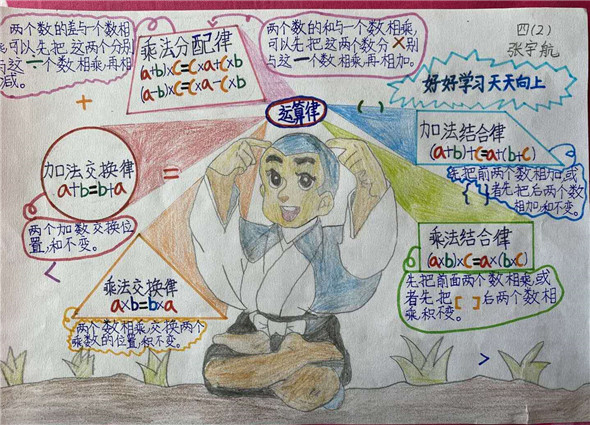 两个数的差与一个数相
可以先把这两个分别
与这一个数相乘,再相
减。
乘法分配律
(a+b)×C=C×a+C×b
(a-b)×C=C×a-C×b
两个数的和与一个数相乘,
可以先把这两数分×别
与这一个数相乘再相加。
四(2)
张宇航
好好学习天天向上
运算律
+
( )
加法结合律
(a+b)+C=a+(b+C)
先把前两个数相加,或
者先把后两个数
相加,和不变。
{ }
加法交换律
a+b=b+a
=
两个加数交换位
置,和不变。
<
乘法结合律
(a×b)×C=a×(b×C)
先把前面两个数相乘,或
者先把[ ]后两个数相
乘,积不变。
乘法交换律
a×b=b×a
两个数相乘,交换两个
乘数的位置,积不变。
>